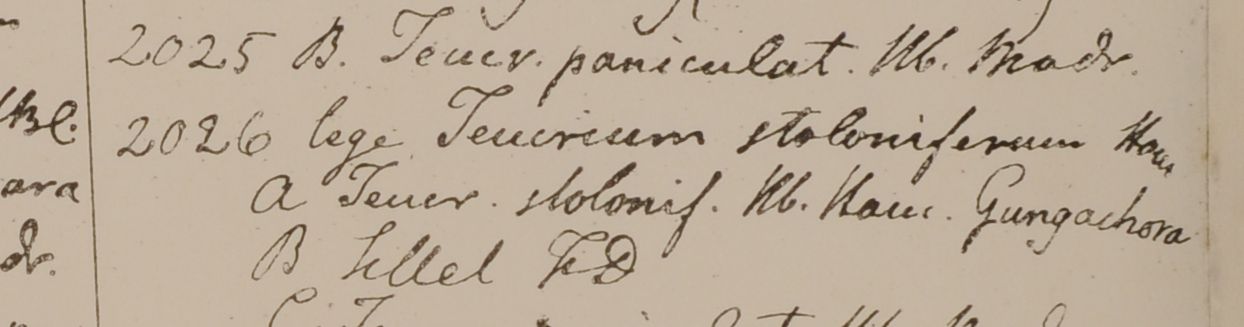 2025 B. Teucr. paniculat. Hb. Madr.
2026 lege Teucrium stoloniferum Ham
A Teucr. stolonif. Hb. Ham. Gungachora
B Sillet FD